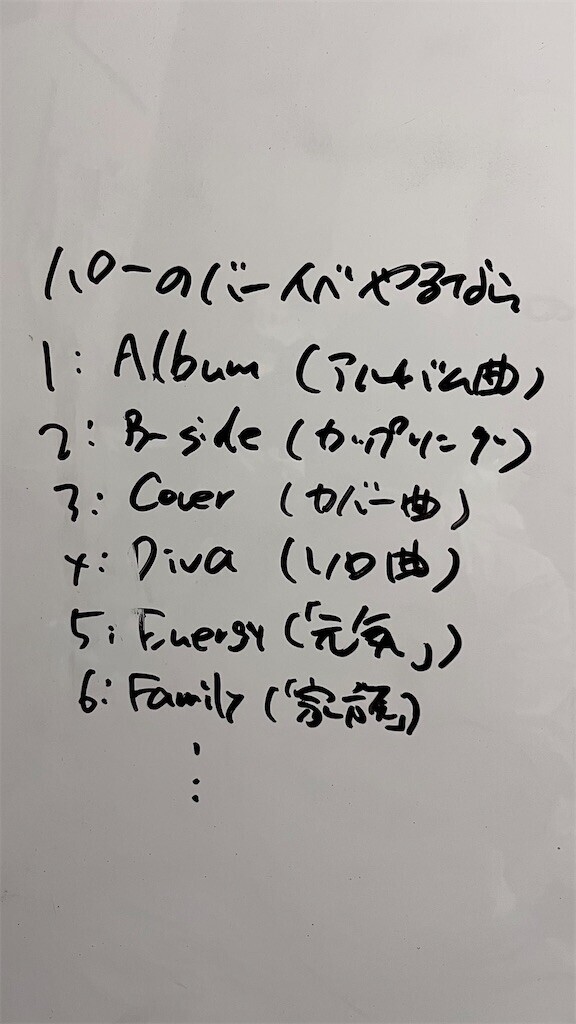 ハローのバーイベやるなら
1: Album (アルバム曲)
2: B-side (カップリング)
3: Cover (カバー曲)
4: Diva (ソロ曲)
5: Energy (「元気」)
6: Family (「家族」)
⋮